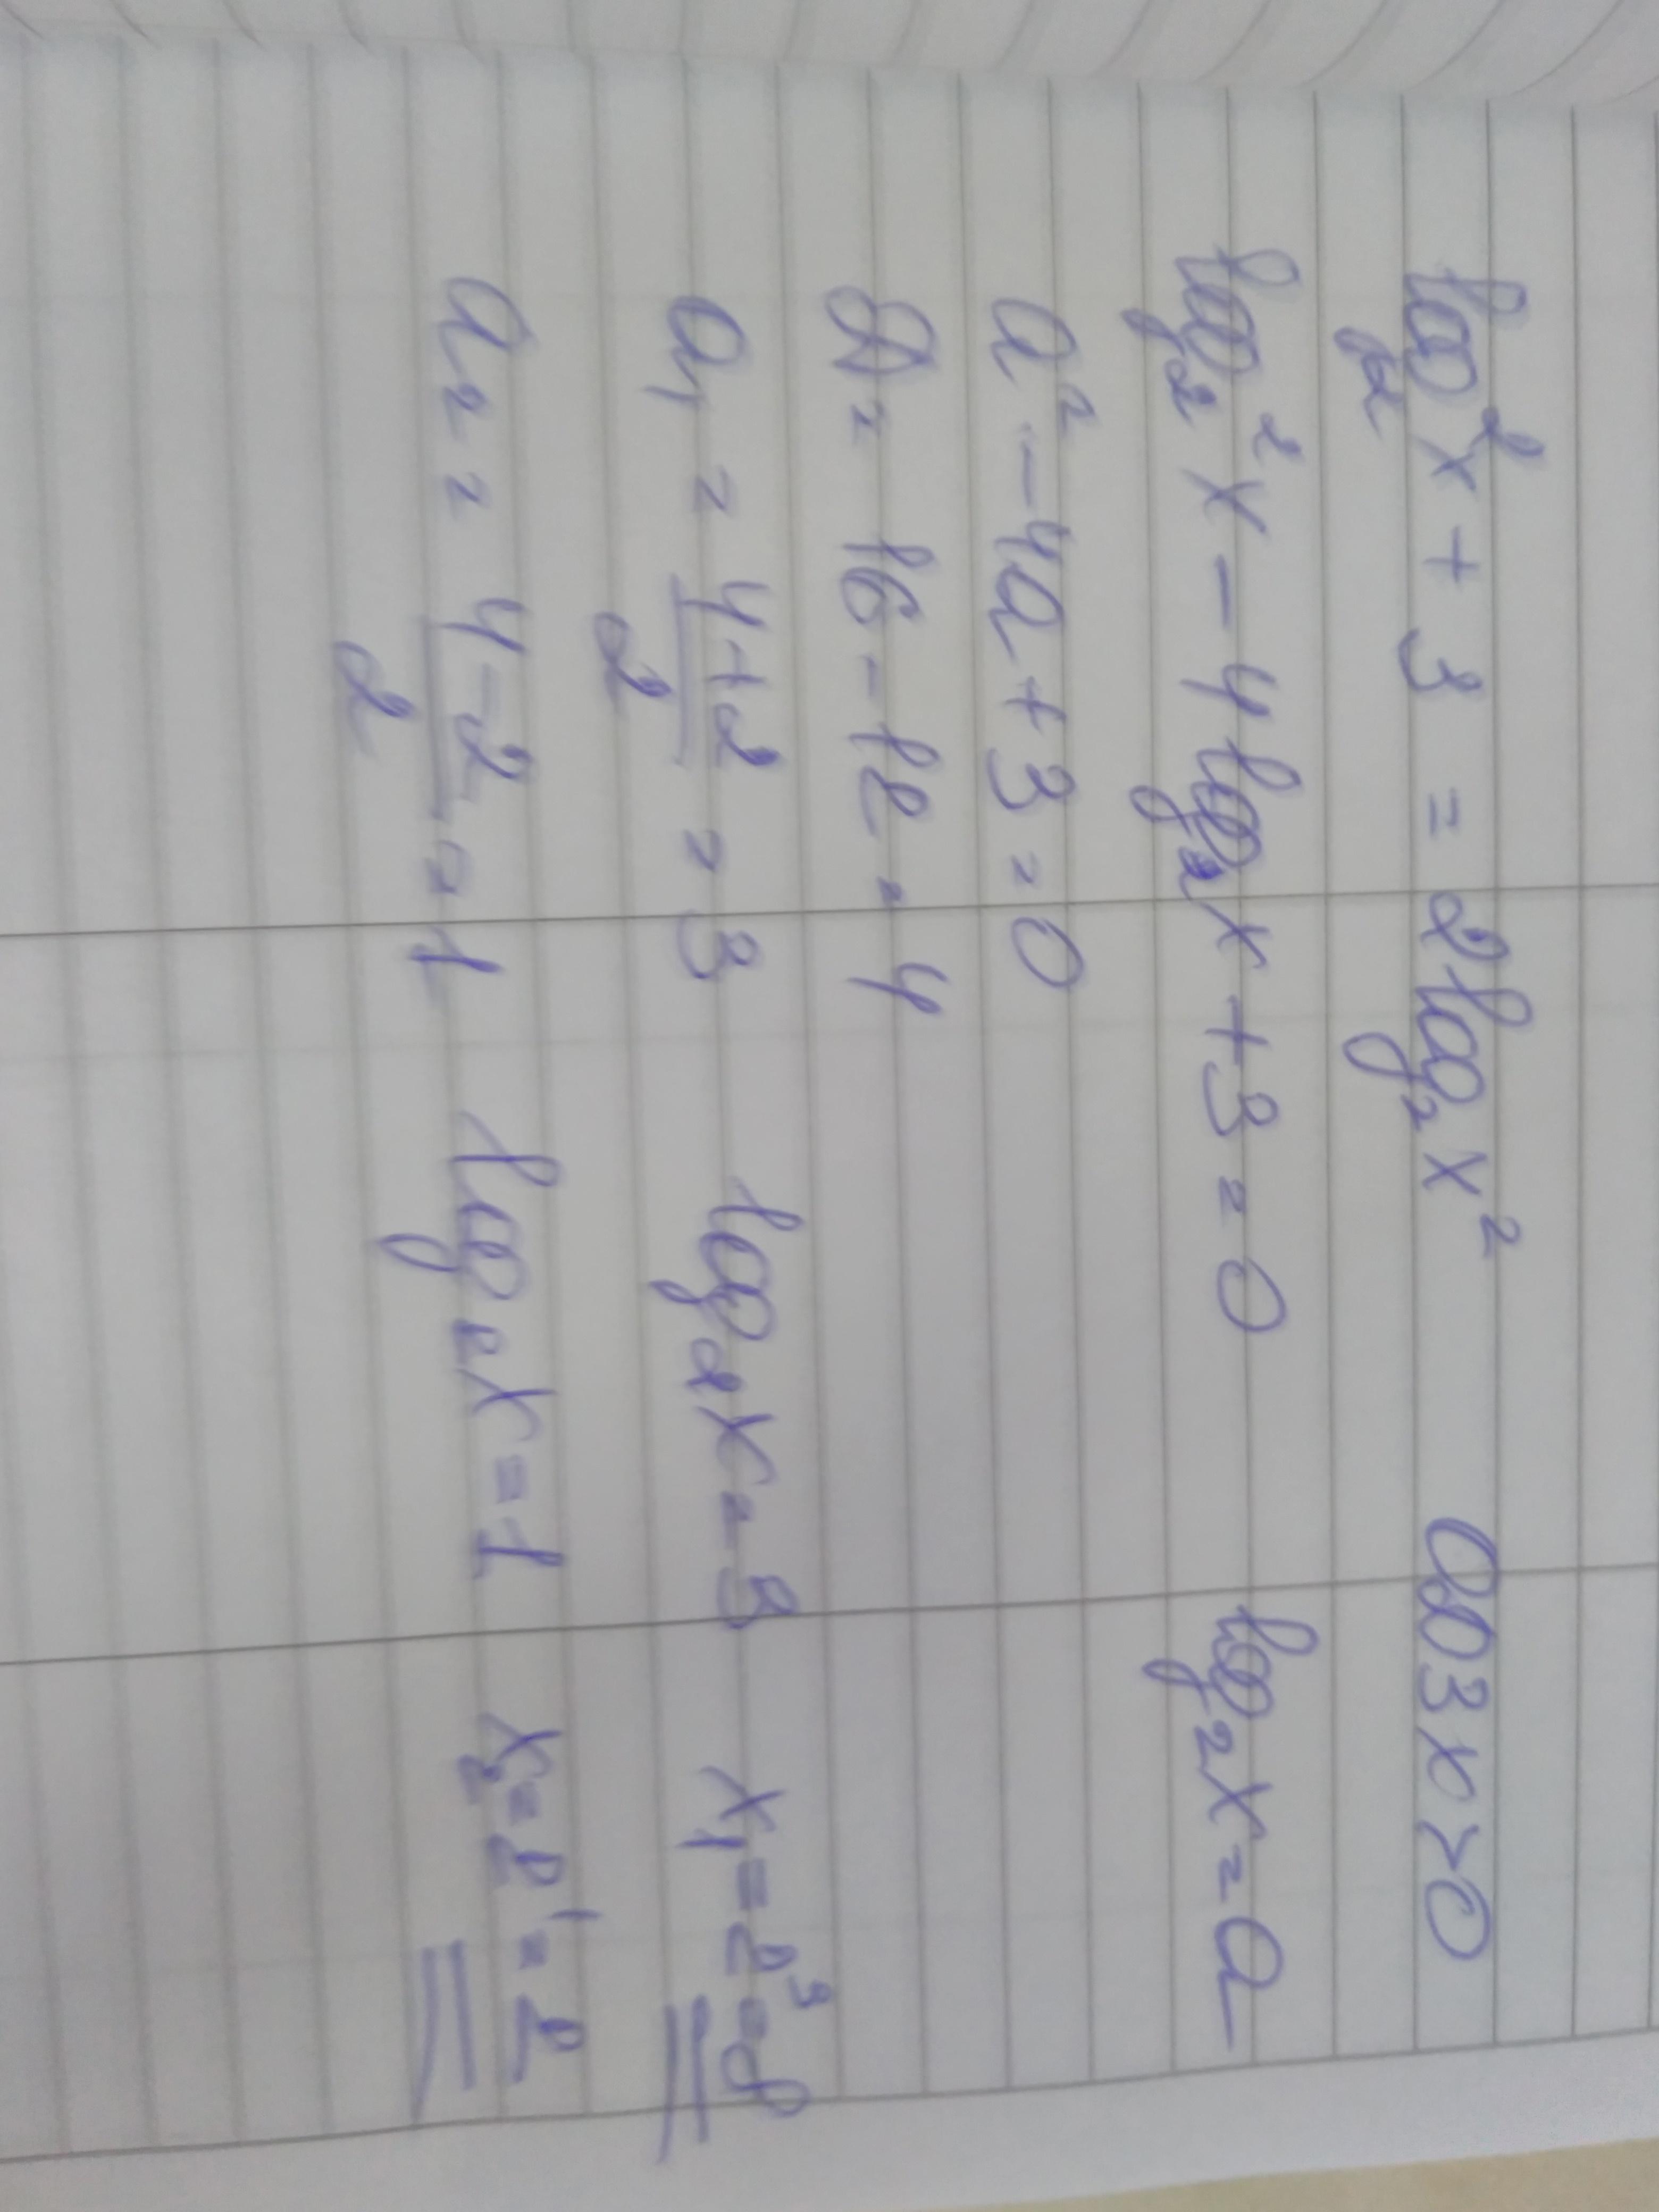 log₂²x + 3 = 2log₂x² ОДЗ x > 0
log₂²x - 4log₂x + 3 = 0 log₂x = a
a² - 4a + 3 = 0
D = 16 - 12 = 4
a₁ = (4+2)/2 = 3 log₂x = 3 x₁ = 2³ = 8
a₂ = (4-2)/2 = 1 log₂x = 1 x₂ = 2¹ = 2